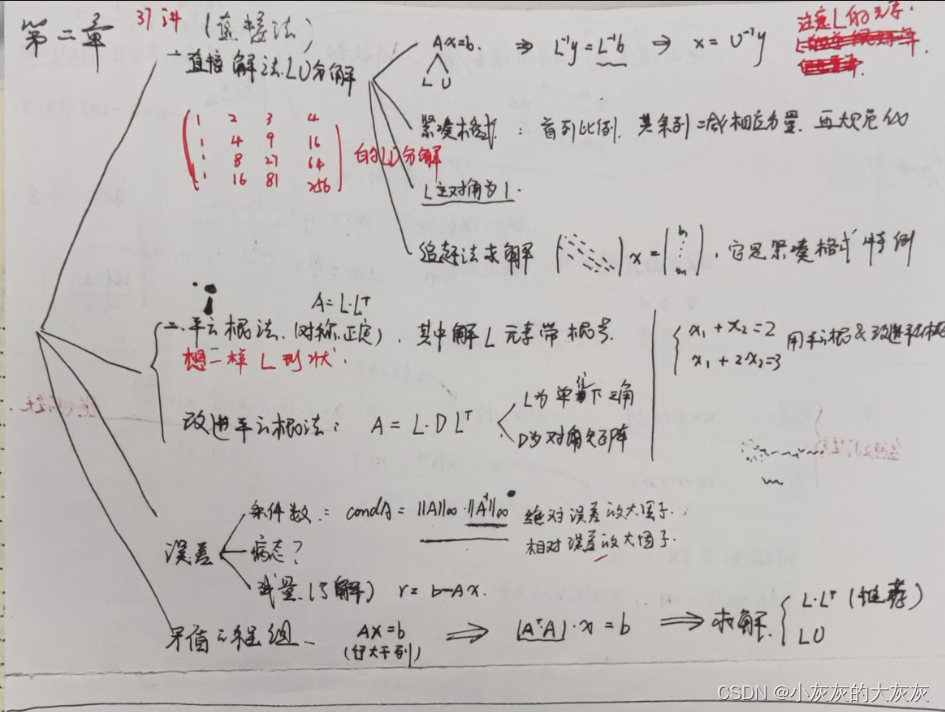 第二章
37讲
(直接法)
一直接解法.LU分解
Ax=b. ⇒ L⁻¹y=L⁻¹b → x=U⁻¹y
L U
注意L的元素.
1 2 3 4
1 4 9 16
1 8 27 64
1 16 81 256
的LU分解
紧凑格式:首列比例.其余列=减相应分量.再
L主对角为1.
追赶法求解 x= .它是紧凑格式特例
A=L·Lᵀ
二.平方根法.(对称正定),其中解L元素带根号.
想一样L形状.
改进平方根法: A=L·DLᵀ
L为单位下三角
D为对角矩阵
x₁+x₂=2
x₁+2x₂=3
用平方根&改进平方根
误差
条件数: condA=||A||∞·||A⁻¹||∞
绝对误差放大因子.
相对误差放大因子.
病态?
(与解) r=b-Ax.
方程组
AX=b
(行大于列)
⇒ [AᵀA]·x=b ⇒ 求解.
L·Lᵀ(推荐)
LU
CSDN @小灰灰的大灰灰